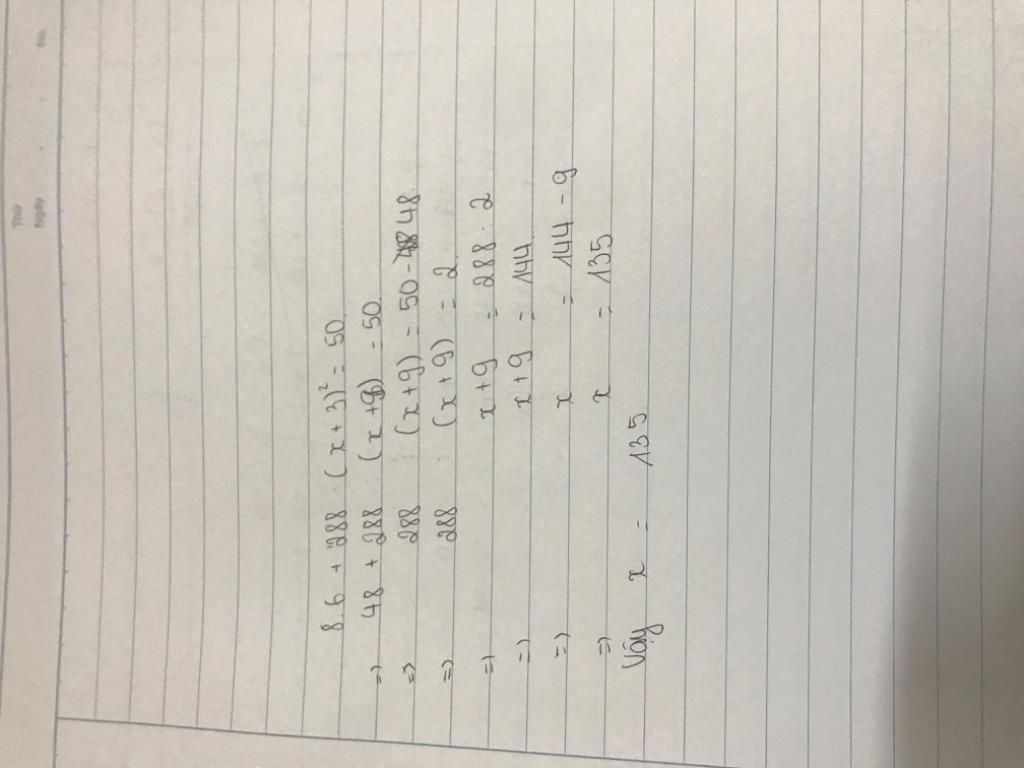 Thứ
Ngày No.
8.6 + 288 : (x + 3)² = 50
=) 48 + 288 (x + 9) = 50
=) 288 : (x + 9) = 50 - 48
=) 288 : (x + 9) = 2
=) x + 9 = 288 : 2
=) x + 9 = 144
=) x = 144 - 9
=) x = 135
Vậy x = 135